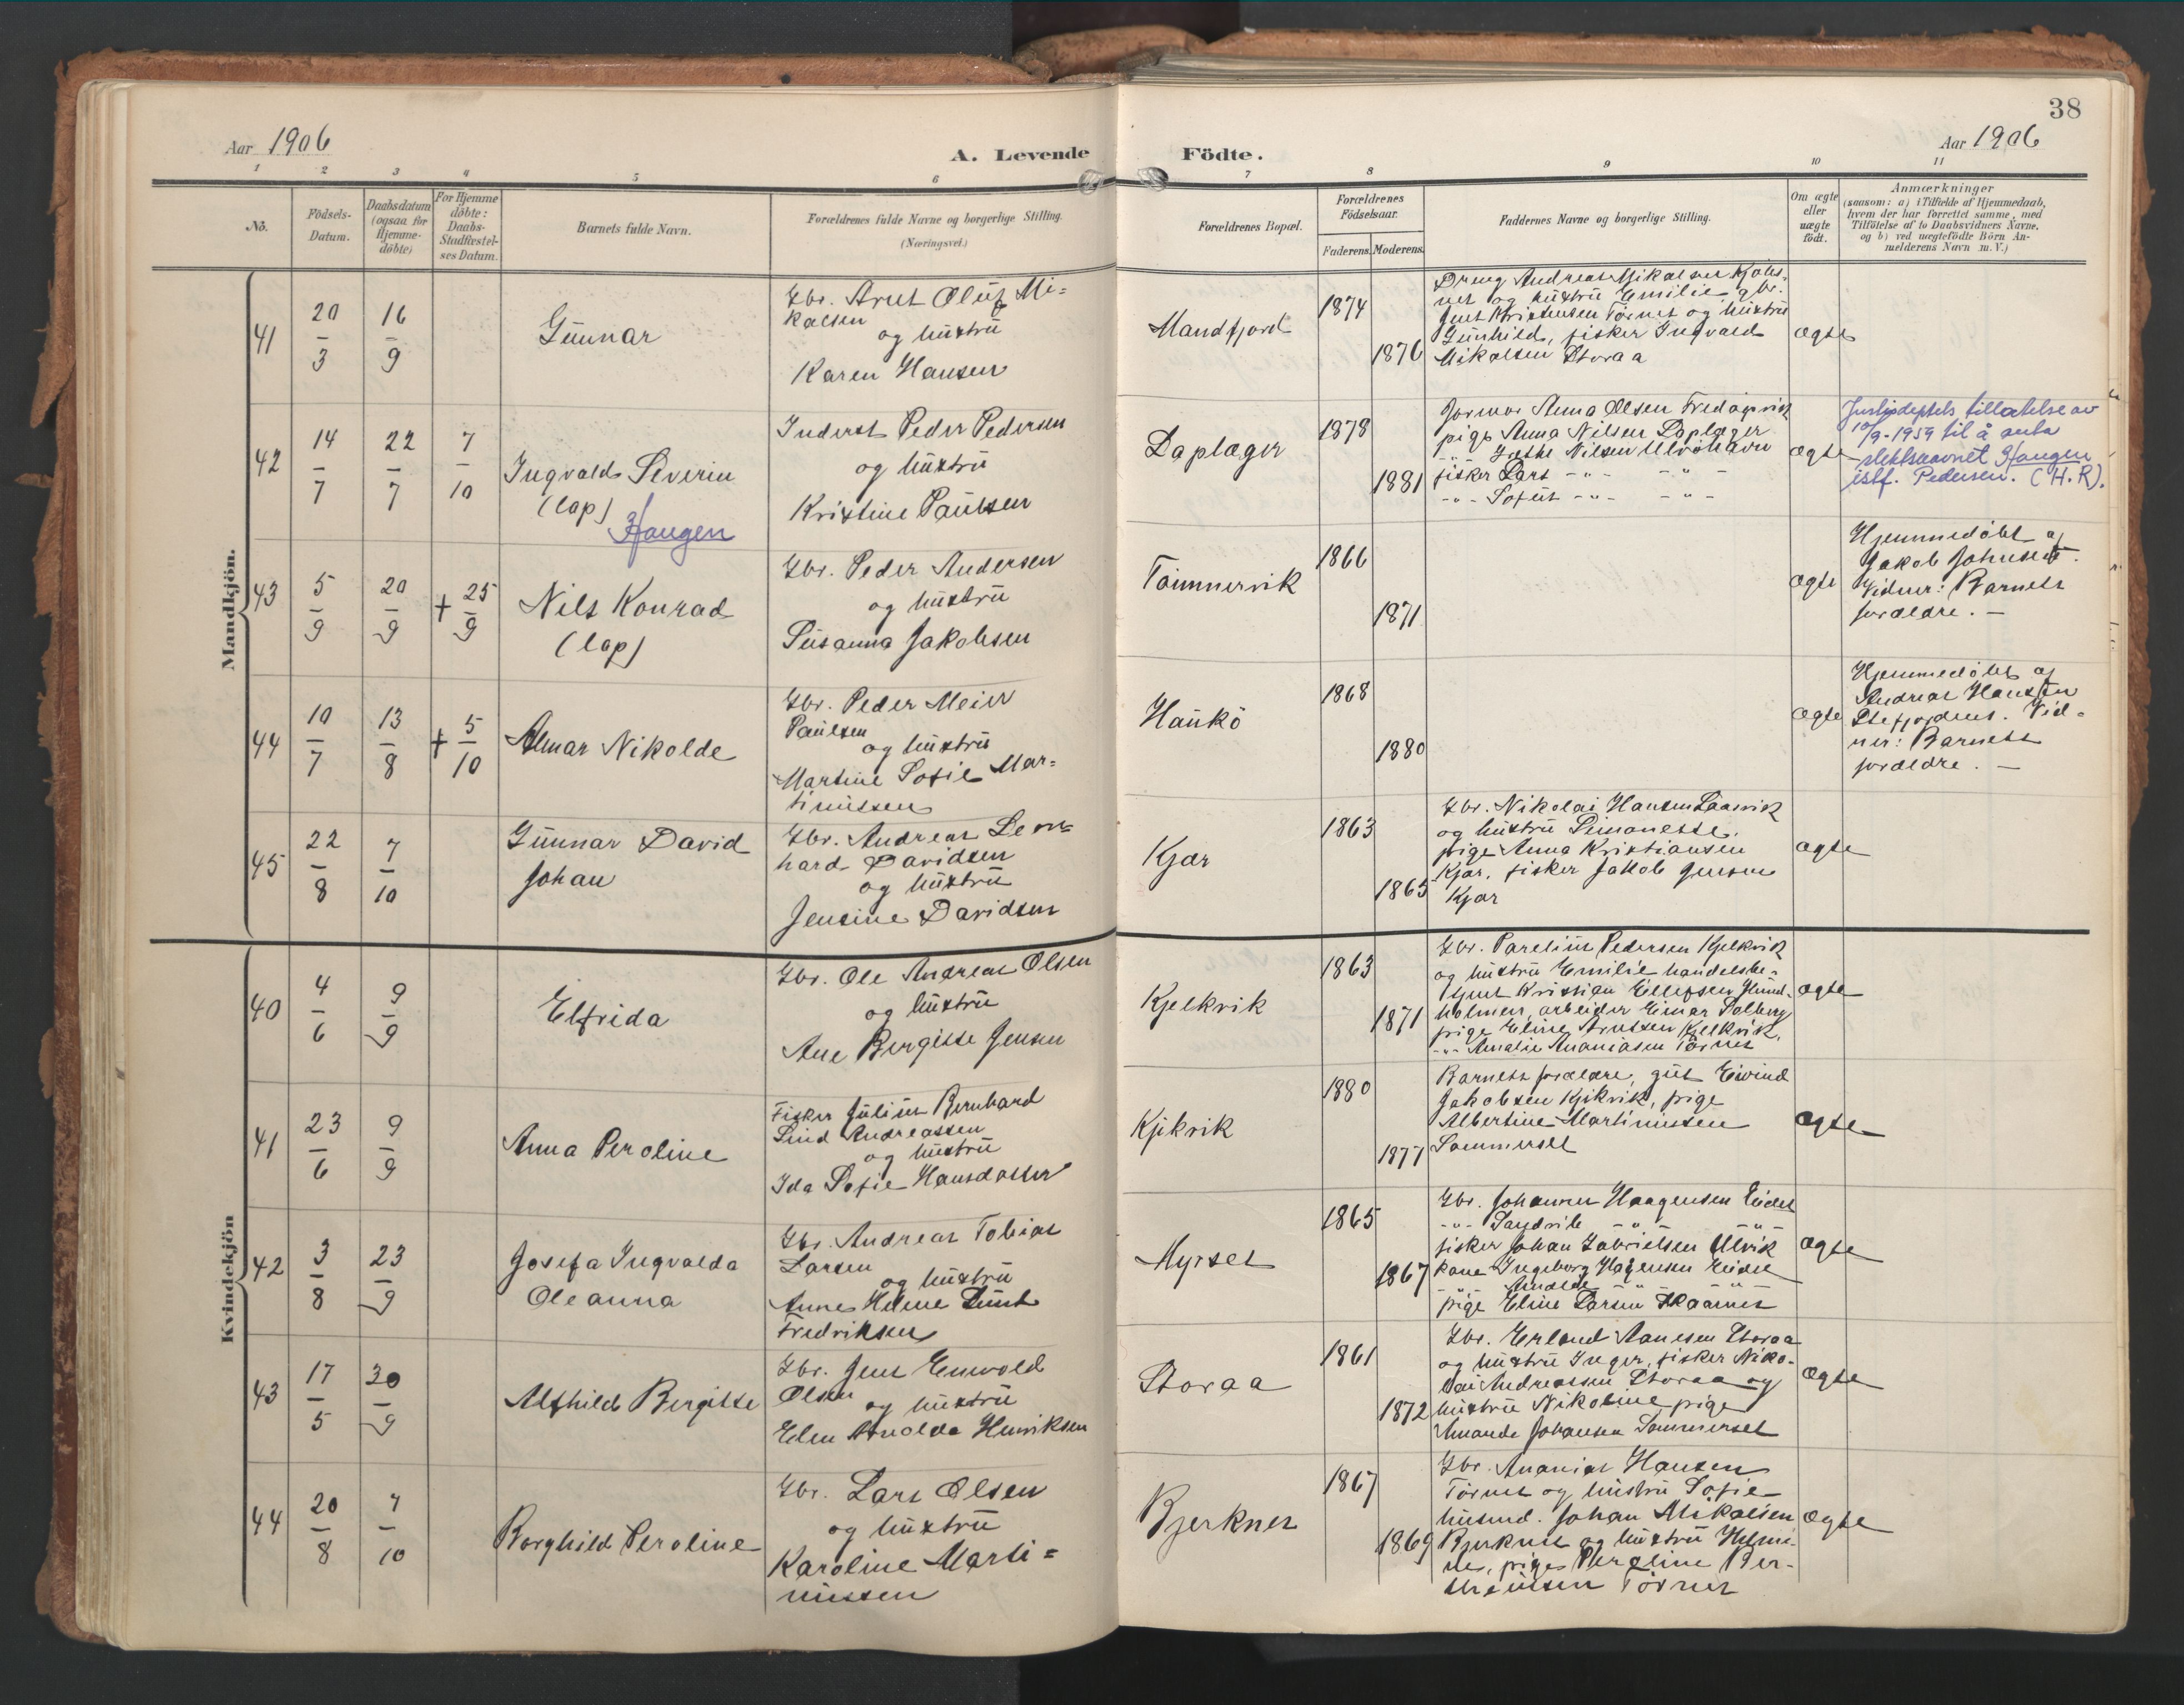 38
Aar 1906
A. Levende Födte.
Aar 1906
1 2 3 4 5 6 7 8 9 10 11
No.
Födsels-
Datum.
Daabsdatum
(ogsaa for
Hjemme-
döbte)
For Hjemme
döbte:
Daabs-
Stadfæstel-
ses Datum.
Barnets fulde Navn.
Forældrenes fulde Navne og borgerlige Stilling.
(Næringsvei.)
Forældrenes Bopæl.
Forældrenes
Födselsaar.
Faderens. Moderens.
Faddernes Navne og borgerlige Stilling.
Om ægte
eller
uægte
födt.
Anmærkninger
(saasom: a) i Tilfælde af Hjemmedaab,
hvem der har forrettet samme, med
Tilföielse af to Daabsvidners Navne.
og b) ved uægtefödte Börn An-
melderens Navn m. V.)
Mandkjön.
41
20/3
16/9
Gunnar
Gbr. Arnt Oluf Mi=
kalsen
og hustru
Karen Hansen
Mandfjord
1874
1876
Dreng Andreas Mikalsen Kjöls-
nes og hustru Emilie, gbr.
Jens Kristensen Törnes og hustru
Gunhild, fisker Ingvald
Mikalsen Storaa
ægte
42
14/7
22/7
7/10
Ingvald Severin
(lap)
Haugen
Inderst Peder Pedersen
og hustru
Kristine Paulsen
Laplæger
1878
1881
Jormor Anna Olsen Fredagsvik
pige Anna Nilsen Laplæger
-"- Grethe Nilsen Ulvöhavn
fisker Lars -"- -"-
-"- Sofus -"- -"-
ægte
Justisdeptets tillatelse av
10/9-1959 til å anta
slektsnavnet Haugen
istf. Pedersen. (H.R).
43
5/9
20/9
+ 25/9
Nils Konrad
(lap)
Gbr. Peder Andersen
og hustru
Susanna Jakobsen
Tömmervik
1866
1871
ægte
Hjemmedöbt af
Jakob Johnsen.
Vidner: Barnets
forældre. —
44
10/7
13/8
+ 5/10
Almar Nikolde
Gbr. Peder Meier
Paulsen
og hustru
Martine Sofie Mar=
tinussen
Haukö
1868
1880
ægte
Hjemmedöbt af
Andreas Hansen
Stefjordnes. Vid-
ner: Barnets
forældre. —
45
22/8
7/10
Gunnar David
Johan
Gbr. Andreas Leon=
hard Davidsen
og hustru
Jensine Davidsen
Kjær
1863
1865
Gbr. Nikolai Hansen Laasvik
og hustru Simonette,
pige Anna Kristiansen
Kjær, fisker Jakob Jensen
Kjær
ægte
Kvindekjön
40
4/6
9/9
Elfrida
Gbr. Ole Andreas Olsen
og hustru
Ane Bergitte Jensen
Kjelkvik
1863
1871
Gbr. Parelius Pedersen Kjelkvik
og hustru Emilie handelsbe-
tjent Kristian Ellefsen Hund-
holmen, arbeider Einar Solberg
pige Eline Arntsen Kjelkvik,
-"- Amalie Ananiasen Törnes
ægte
41
23/6
9/9
Anna Peroline
Fisker Julius Bernhard
Lind Andreassen
og hustru
Ida Sofie Hansdatter
Kjikvik
1880
1877
Barnets forældre, gut Eivind
Jakobsen Kjikvik, pige
Albertine Martinussen
Sommerset
ægte
42
3/8
23/9
Josefa Ingvalda
Oleanna
Gbr. Andreas Tobias
Larsen
og hustru
Anne Helene Lund
Fredriksen
Myrset
1865
1867
Gbr. Johannes Haagensen Eidet
-"- -"- -"-
fisker Johan Gabrielsen Ulvik
kone Ingeborg Hagensen Eidet
-"- -"- -"-
pige Eline Larsen Skaarnes
ægte
43
17/5
30/9
Alfhild Bergitte
Gbr. Jens Enevold
Olsen
og hustru
Elen Arnolda Henriksen
Storaa
1861
1872
Gbr. Erland Aanesen Storaa
og hustru Inger, fisker Niko-
lai Andreassen Storaa og
hustru Nikoline, pige
Amanda Johansen Sommerset
ægte
44
20/8
7/10
Borghild Peroline
Gbr. Lars Olsen
og hustru
Karoline Marti=
nussen
Bjerknes
1867
1869
Gbr. Ananias Hansen
Törnes og hustru Sofie
husmd. Johan Mikalsen
Bjerknes og hustru Helmi-
ne, pige Peroline Ber-
Törnes
ægte